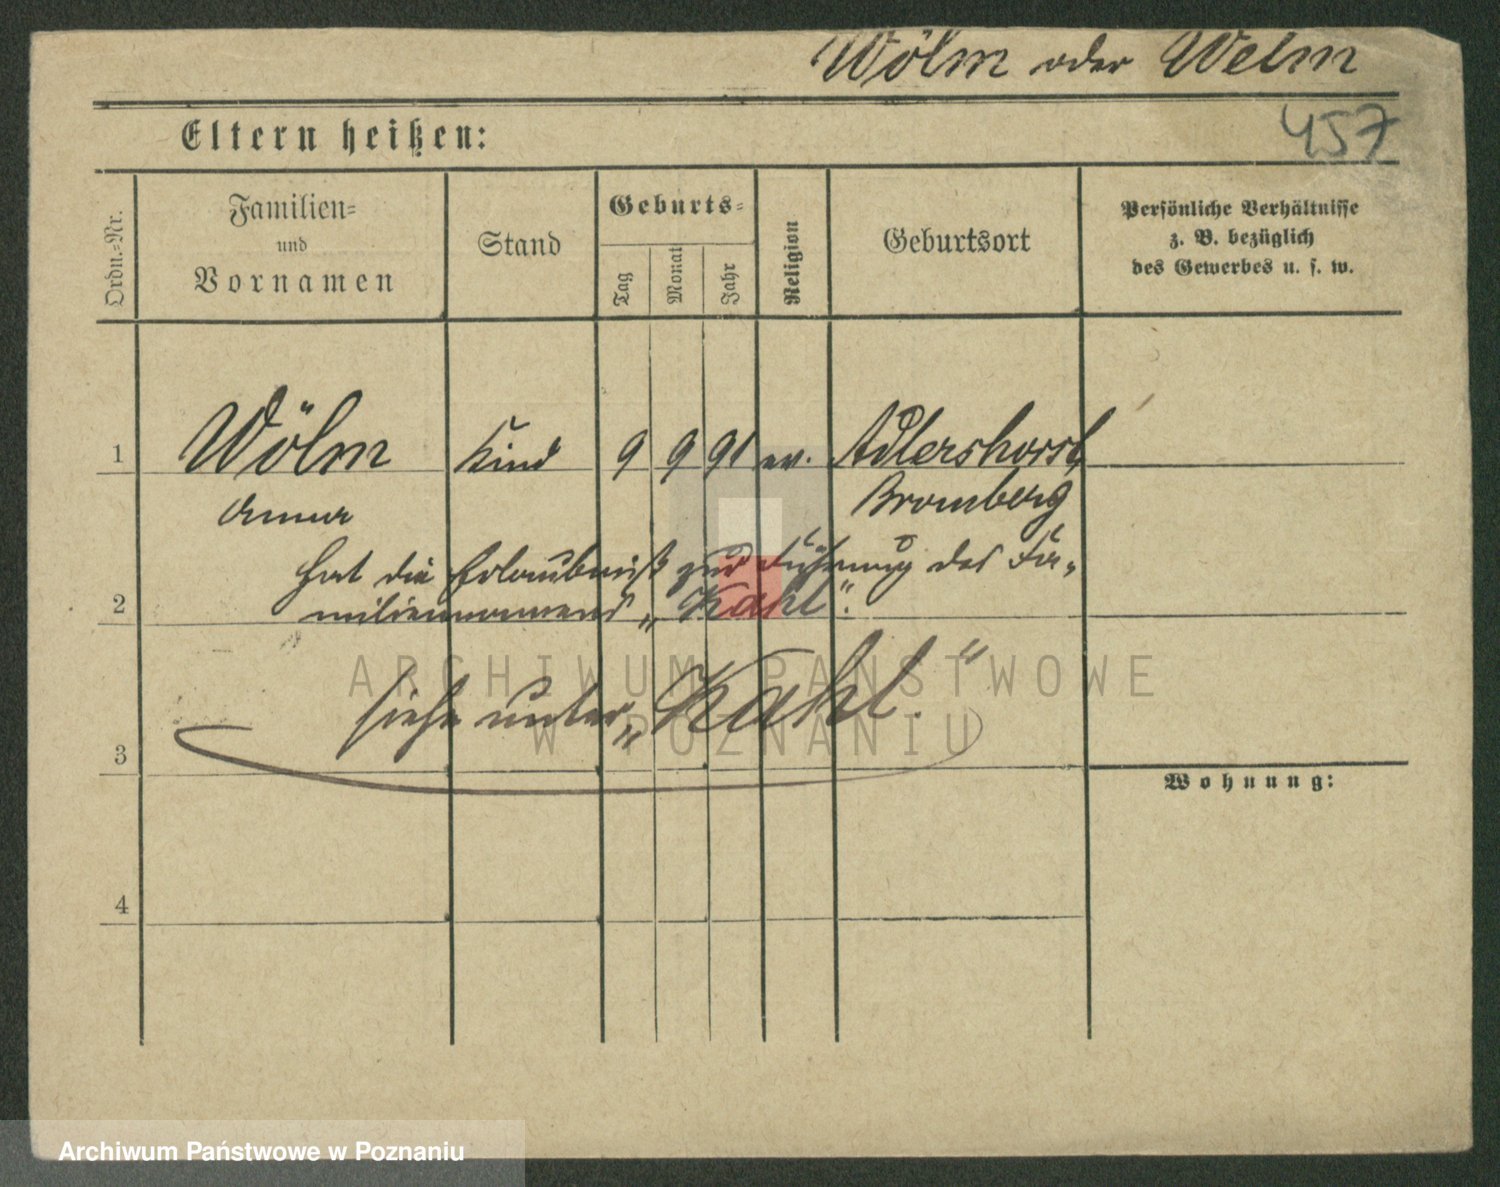 Wölm oder Welm
457
Eltern heißen:
Ordn.=Nr.
Familien=
und
Vornamen
Stand
Geburts=
Tag
Monat
Jahr
Religion
Geburtsort
Persönliche Verhältnisse
z. B. bezüglich
des Gewerbes u. s. w.
1 Wölm Kind 9 9 91 ev. Adlershorst,
Anna Bromberg
hat die Erlaubniß zur Führung des Fa-
2 miliennamens „Kahl".
ARCHIWUM PAŃSTWOWE
siehe unter „Kahl."
W POZNANIU
3
Wohnung:
4
Archiwum Państwowe w Poznaniu